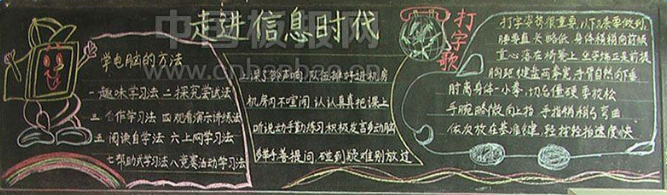 走进信息时代
学电脑的方法
一 趣味学习法 二 探究学试法
三 合作学习法 四 观看演示训练法
五 阅读自学法 六 上网学习法
七 帮助式学习法 八 竞赛活动学习法
上课了铃声响 队伍排好进机房
机房内不喧闹 认认真真把课上
听说动手勤练习 积极发言多动脑
多和善提问 碰到疑难别放过
打字歌
打字姿势很重要 以下几条要做到
腰要直长略低 身体稍稍向前倾
重心落在椅凳上 坐字端正是前提
胸距键盘两拳宽 手臂自然向下垂
肘离身体一小拳 切忌僵硬要放松
手腕略微向上抬 手指稍稍弯曲
依次放在基准键 轻打轻抬速度快